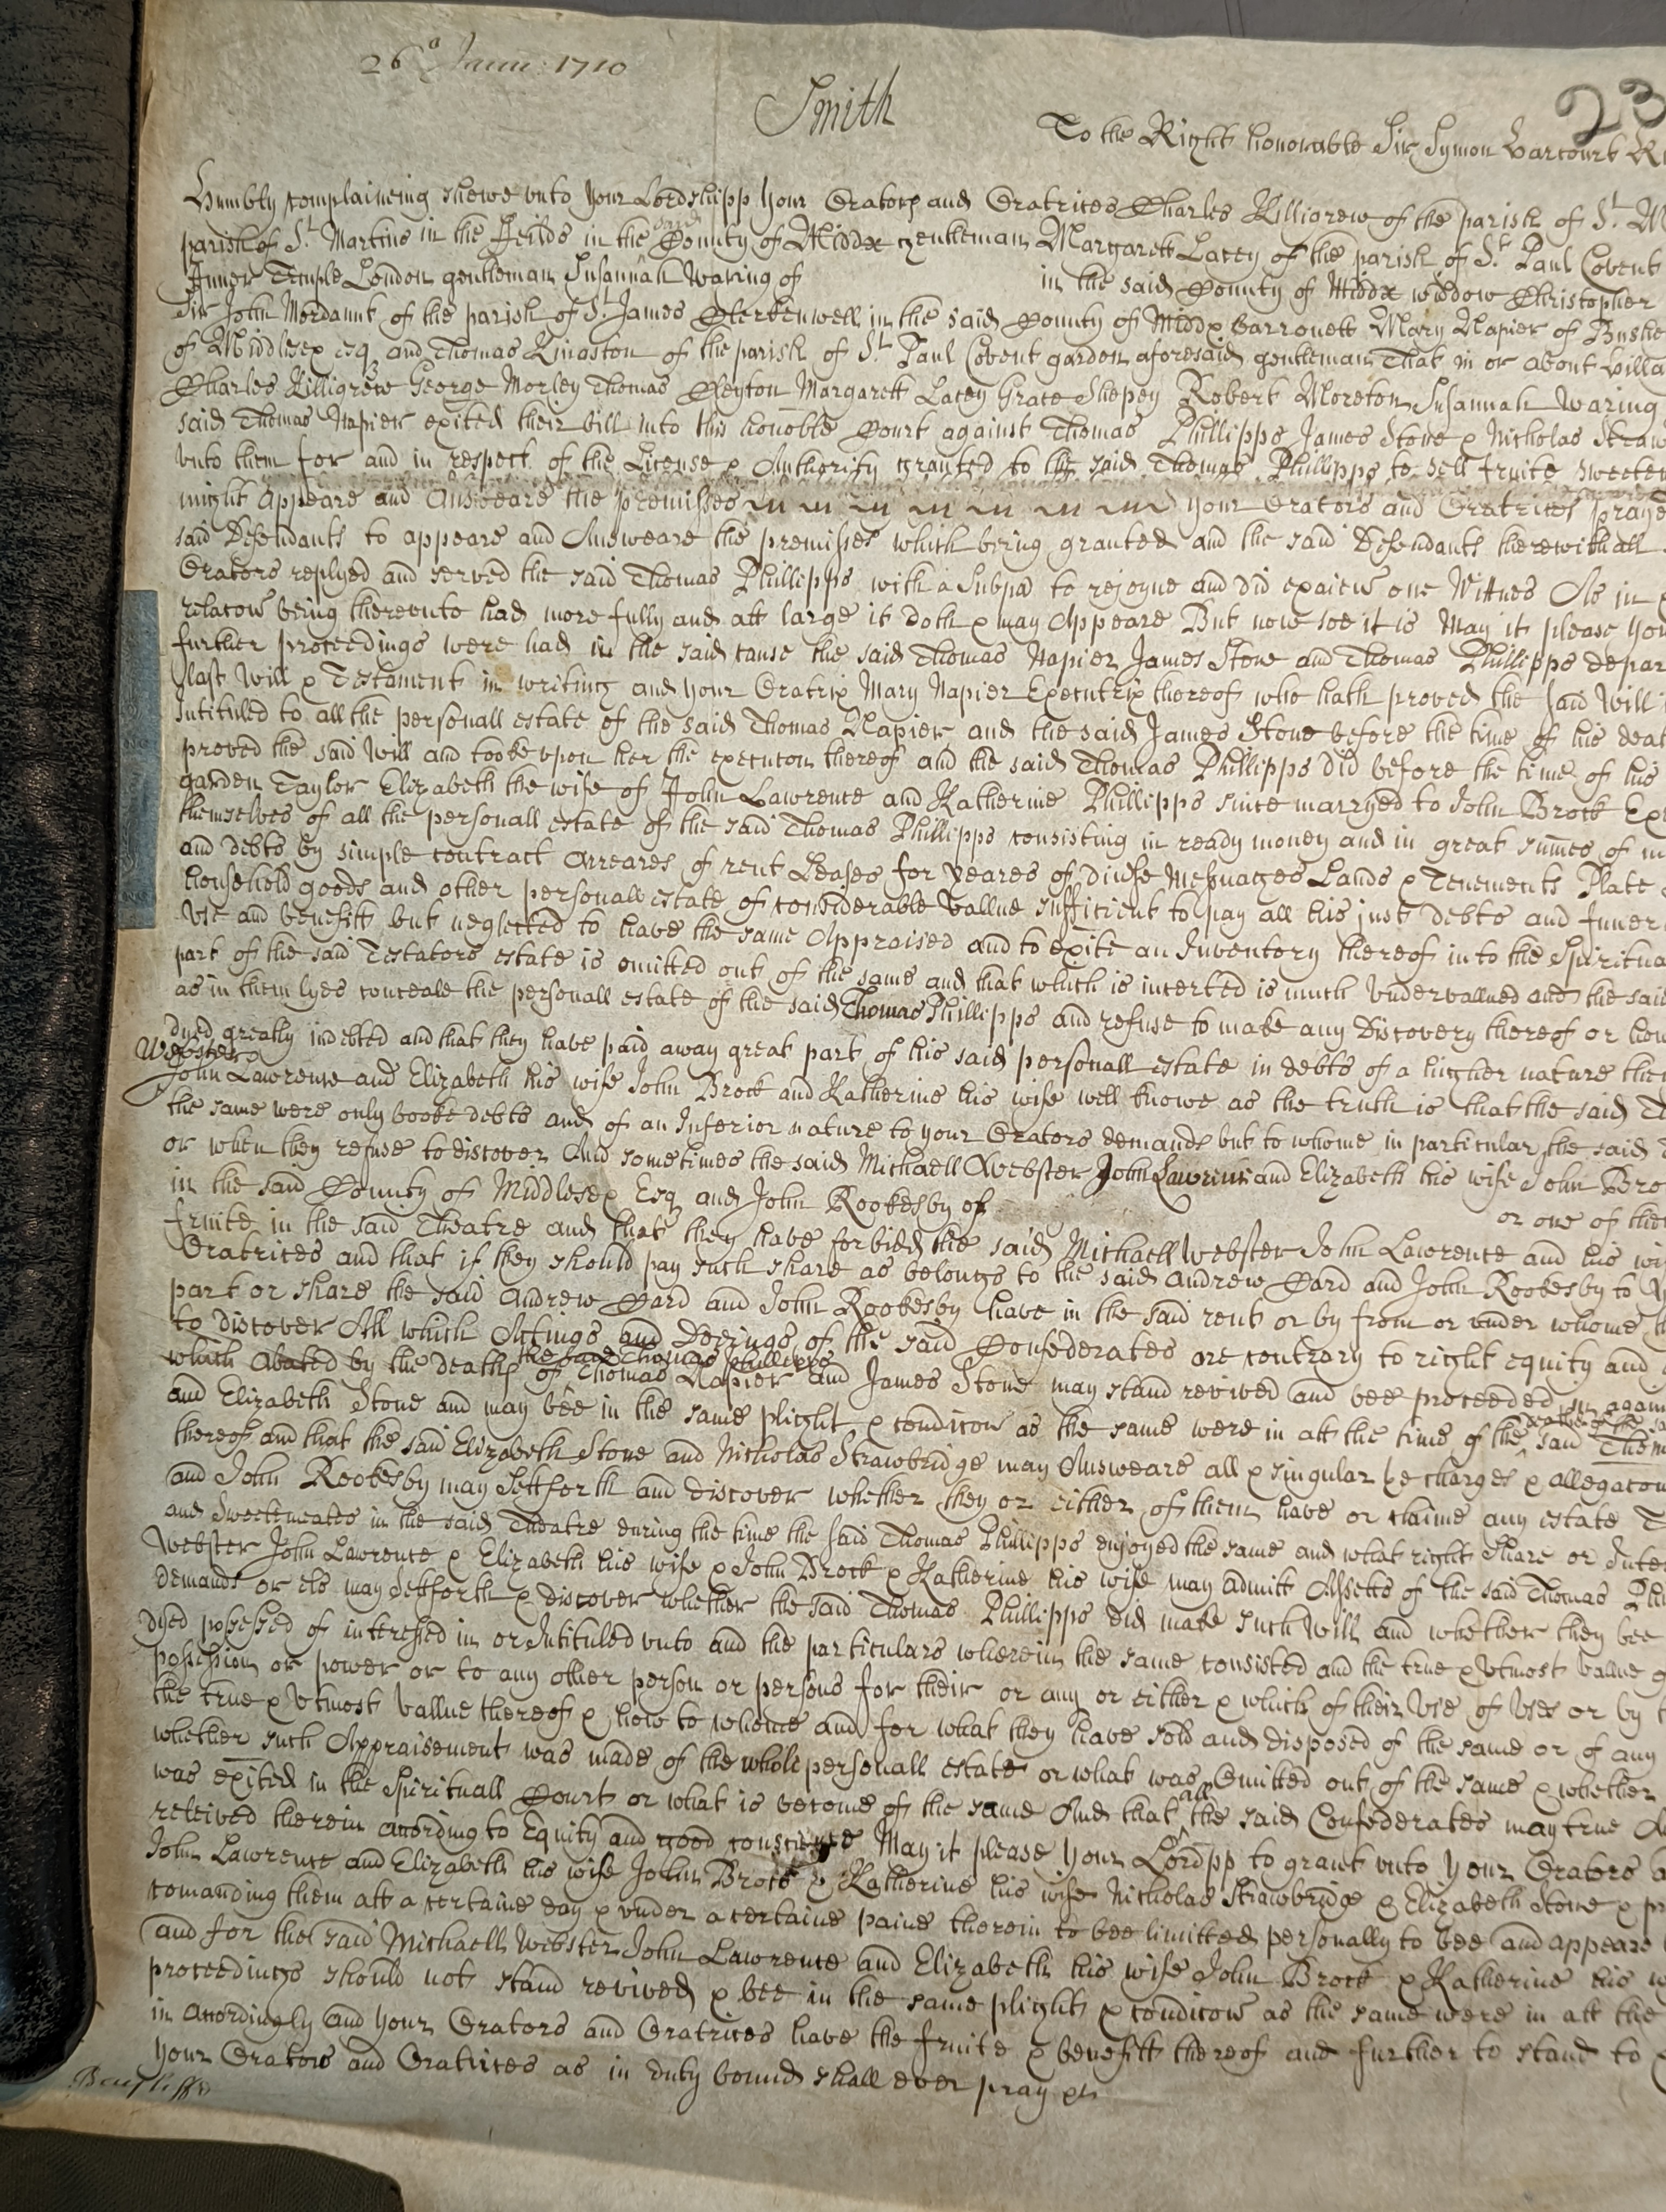 26o Junii 1710
Smith
23
To the Right honorable Sir Symon Harcourt
Humbly complaineing shewe unto your Lordshipp your Orators and Oratrices Charles Killigrew of the parish of St. M
parish of St. Martins in the Feilds in the said County of Middx gentleman Margarett Lacey of the parish of St. Paul Covent
Inner Temple London gentleman Susannah Waring of in the said County of Middx widdow Christopher
Sir John Mordaunt of the parish of St. James Clerkenwell in the said County of Middx Barronett Mary Napier of Bushe
of Middlesex esq and Thomas Kingston of the parish of St. Paul Covent garden aforesaid gentleman That in or about Hilla
Charles Killigrew George Morley Thomas Cleyton Margarett Lacey Grace Shepey Robert Moreton Susannah Waring
said Thomas Napier exited their bill into this honoble Court against Thomas Phillipps James Stone & Nicholas Straw
unto them for and in respect of the License & Authority granted to the said Thomas Phillipps to sell fruite sweetem
might appeare and Answeare the premisses your Orators and Oratrices praye
said Defendants to appeare and Answeare the premisses which being granted and the said Defendants therewithall
Orators replyed and served the said Thomas Phillipps with a Subpa to rejoyne and did exaiew one Wittnes As in
relacow being thereunto had more fully and att large it doth & may Appeare But now soe it is May it please your
further proceedings were had in the said cause the said Thomas Napier James Stone and Thomas Phillipps depar
last will & Testament in writing and your Oratrix Mary Napier Executrix thereof who hath proved the said Will
Intituled to all the personall estate of the said Thomas Napier and the said James Stone before the time of his deat
proved the said Will and tooke upon her the execucon thereof and the said Thomas Phillipps did before the time of his
garden Taylor Elizabeth the wife of John Lawrence and Katherine Phillipps since marryed to John Brock Ex
themselves of all the personall estate of the said Thomas Phillipps consisting in ready money and in great sumes of m
and debts by simple contract Arreares of rent Leases for yeares of diverse Messuages Lands & Tenements Plate
household goods and other personall estate of considerable vallue sufficient to pay all his just debts and funer
use and benefitt but neglected to have the same Appraised and to exite an Inventory thereof into the Spiritua
part of the said Testators estate is omitted out of the same and that which is inserted is much undervallued and the said
as in them lyes conceale the personall estate of the said Thomas Phillipps and refuse to make any Discovery thereof or how
dyed greatly indebted and that they have paid away great part of his said personall estate in debts of a higher nature then
Webster
John Lawrence and Elizabeth his wife John Brock and Katherine his wife well knowe as the truth is that the said T
the same were only booke debts and of an Inferior nature to your Orators demands but to whome in particular the said
or when they refuse to discover And sometimes the said Michaell Webster John Lawrence and Elizabeth his wife John Bro
in the said County of Middlesex Esq and John Rookesby of or one of them
fruite in the said Theatre and that they have forbidd the said Michaell Webster John Lawrence and his wi
Oratrices and that if they should pay such share as belongs to the said Andrew Card and John Rookesby to
part or share the said Andrew Card and John Rookesby have in the said rent or by from or under whome
to discover All which Actings and Doeings of the said Confederates are contrary to right equity and
the said Thomas Phillipps
which Abated by the deaths of Thomas Napier and James Stone may stand revived and bee proceeded in again
and Elizabeth Stone and may bee in the same plight & condicow as the same were in att the time of the death of the said Thom
thereof and that the said Elizabeth Stone and Nicholas Strawbridge may Answeare all & singular the charges & allegacow
and John Rookesby may Settforth and discover whether they or either of them have or claime any estate
and Sweetmeates in the said Theatre during the time the said Thomas Phillipps enjoyed the same and what right share or Inter
Webster John Lawrence & Elizabeth his wife & John Brock & Katherine his wife may admitt Assetts of the said Thomas Phi
demands or els may Settforth & discover whether the said Thomas Phillipps did make such Will and whether they bee
dyed possessed of interessed in or Intituled unto and the particulars wherein the same consisted and the true & utmost vallue
possession or power or to any other person or persons for their or any or either & which of their use of uses or by
the true & utmost vallue thereof & how to whome and for what they have sold and disposed of the same or of any
whether such Appraisement was made of the whole personall estate or what was Omitted out of the same & whether
was exited in the Spirituall Court or what is become of the same And that all the said Confederates may true
received therein according to Equity and good conscience May it please your Lordpp to grant unto your Orators a
John Lawrence and Elizabeth his wife John Brock & Katherine his wife Nicholas Strawbridge & Elizabeth Stone &
comanding them att a certaine day & under a certaine paine therein to bee limitted personally to bee and appeare
and for the said Michaell Webster John Lawrence and Elizabeth his wife John Brock & Katherine his
proceedings should not stand revived & bee in the same plight & condicow as the same were in att the
in accordingly and your Orators and Oratrices have the fruite & benefitt thereof and further to stand to
your Orators and Oratrices as in duty bound shall ever pray &c